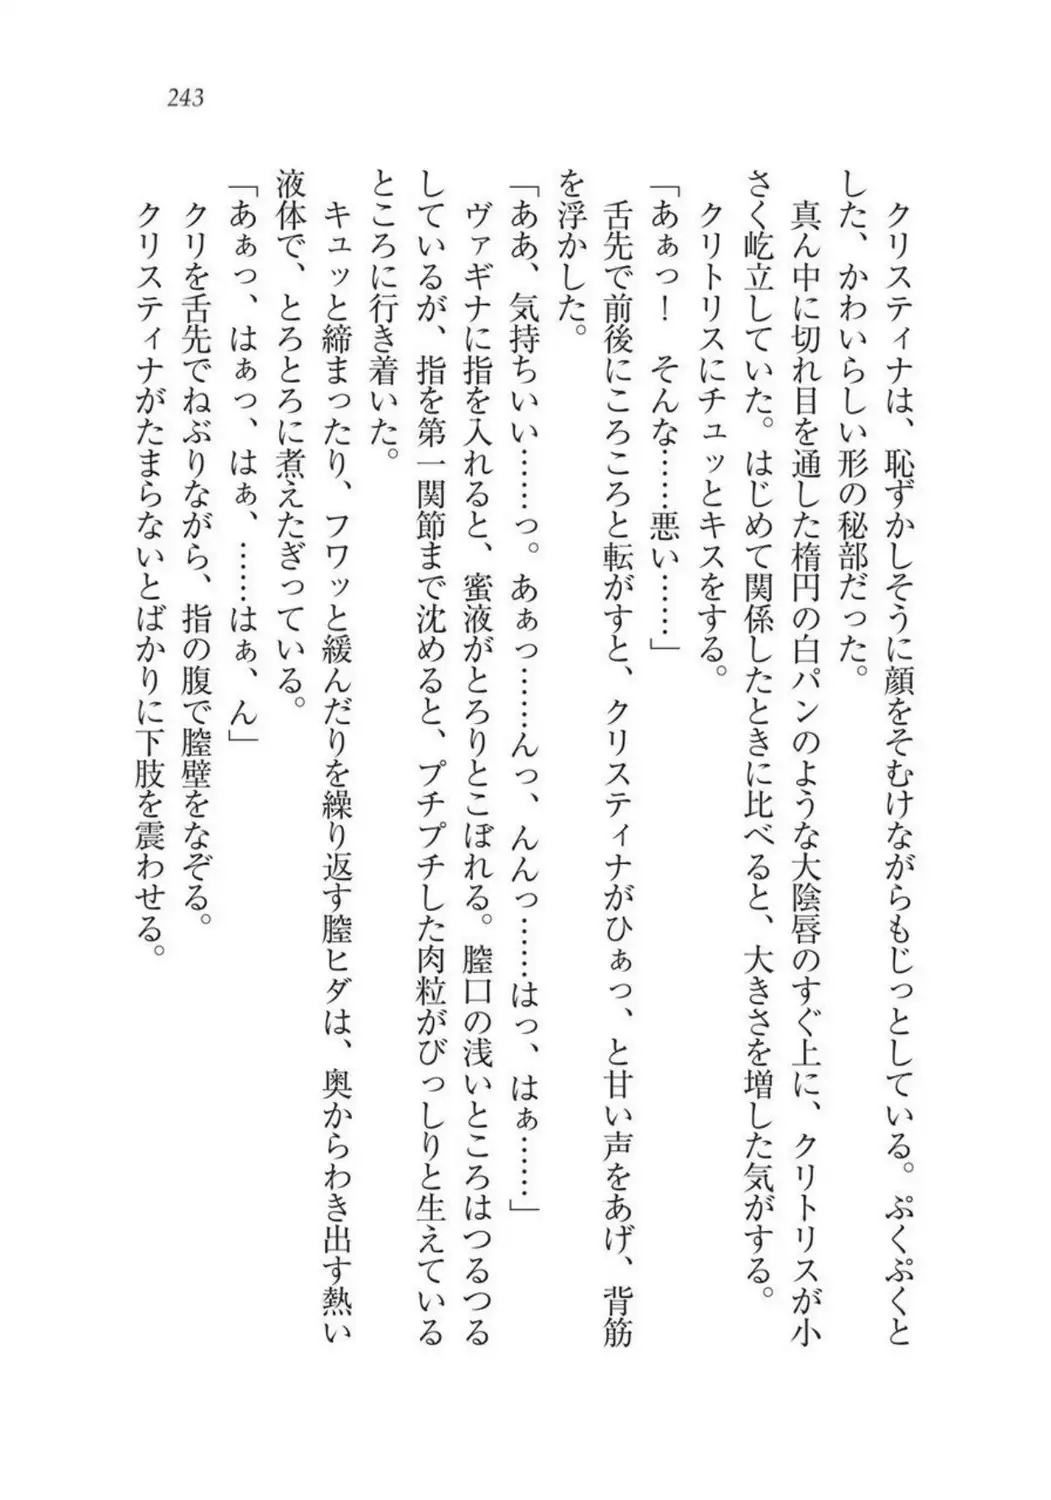 243
クリスティナは、恥ずかしそうに顔をそむけながらもじっとしている。ぷくぷくと
した、かわいらしい形の秘部だった。
真ん中に切れ目を通した楕円の白パンのような大陰唇のすぐ上に、クリトリスが小
さく屹立していた。はじめて関係したときに比べると、大きさを増した気がする。
クリトリスにチュッとキスをする。
「あぁっ！　そんな……悪い……」
舌先で前後にころころと転がすと、クリスティナがひぁっ、と甘い声をあげ、背筋
を浮かした。
「ああ、気持ちいい……っ。あぁっ……んっ、んんっ……はっ、はぁ……」
ヴァギナに指を入れると、蜜液がとろりとこぼれる。膣口の浅いところはつるつる
しているが、指を第一関節まで沈めると、プチプチした肉粒がびっしりと生えている
ところに行き着いた。
キュッと締まったり、フワッと緩んだりを繰り返す膣ヒダは、奥からわき出す熱い
液体で、とろとろに煮えたぎっている。
「あぁっ、はぁっ、はぁ、……はぁ、ん」
クリを舌先でねぶりながら、指の腹で膣壁をなぞる。
クリスティナがたまらないとばかりに下肢を震わせる。